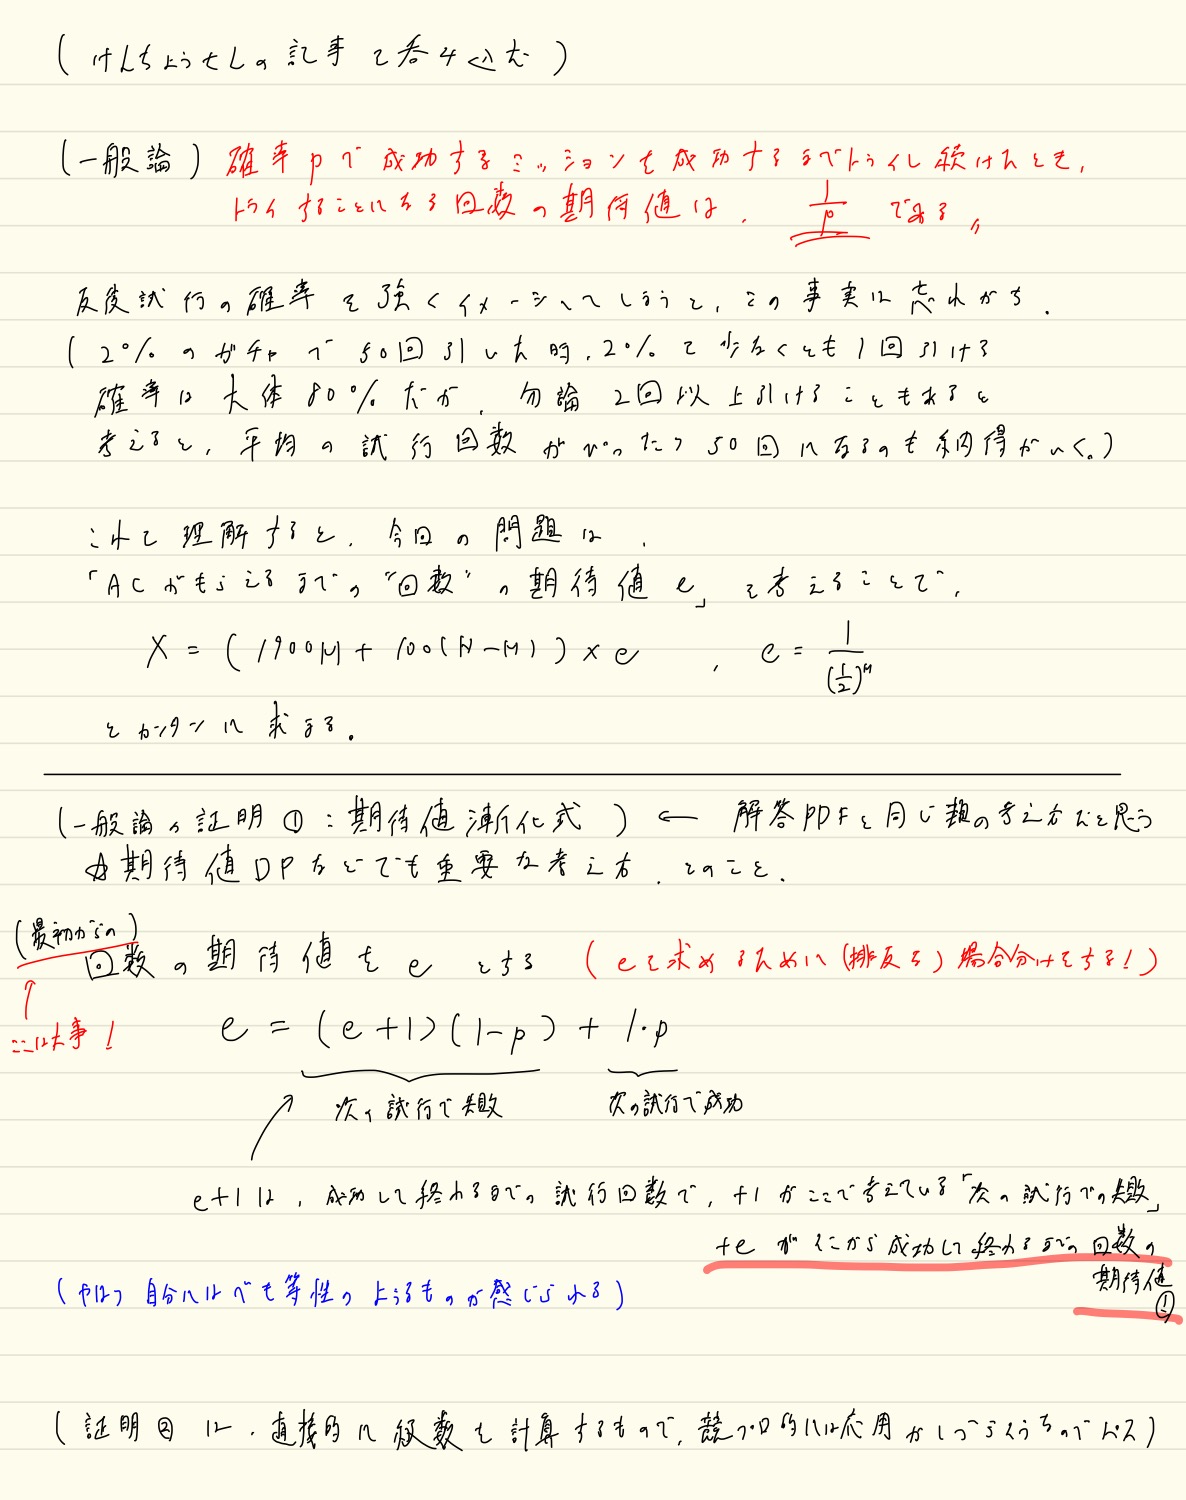 (けんちょうさんの記事で呑み込む)
(一般論) 確率pで成功するミッションを成功するまでトライし続けたとき,
トライすることになる回数の期待値は, 1/p である〃
反復試行の確率を強くイメージしてしまうと, この事実は忘れがち.
(2%のガチャで50回引いた時, 2%で少なくとも1回引ける
確率は大体80%だが, 勿論2回以上引けることもあると
考えると, 平均の試行回数がぴったり50回になるのも納得がいく。)
これで理解すると, 今回の問題は,
「ACがもらえるまでの"回数"の期待値e」を考えることで,
X = (1900M + 100(N-M)) × e , e = 1/(1/2)^M
とカンタンに求まる.
(一般論の証明①: 期待値漸化式) ← 解答PDFと同じ類の考え方だと思う
☆期待値DPなどでも重要な考え方, とのこと.
(最初からの)
回数の期待値をeとする (eを求めるために(排反な)場合分けをする!)
↑
ここは大事!
e = (e+1)(1-p) + 1・p
次の試行で失敗 次の試行で成功
e+1は, 成功して終わるまでの試行回数で, +1がここで考えている「次の試行での失敗」
+eがそこから成功して終わるまでの回数の
期待値
(やはり自分にはべき等性のようなものが感じられる)
(証明②は, 直接的に級数を計算するもので, 競プロ的には応用がしづらそうなのでパス)